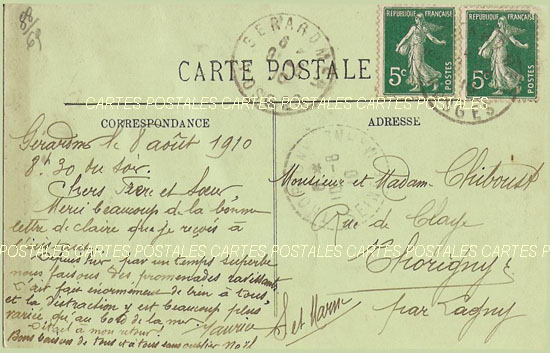 88/69
GERARDMER
VOSGES
REPUBLIQUE FRANÇAISE
5c POSTES
REPUBLIQUE FRANÇAISE
5c POSTES
CARTE POSTALE
CARTES POSTALES CARTES POSTALES CARTES POSTALES CARTES POSTALES
CORRESPONDANCE
ADRESSE
Gérardmer le 8 août 1910
8h30 du soir.
Chers Frère et Sœur
Merci beaucoup de la bonne
lettre de claire que je reçois à
CARTES POSTALES CARTES POSTALES CARTES POSTALES CARTES POSTALES
par un temps superbe
nous faisons des promenades ravissantes
fait énormément de bien à tous,
et la distraction y est beaucoup plus
variée qu'au bord de la mer.
Détail à mon retour.
Bons baisers de tous et à tous sans oublier Noël
Monsieur et Madame Thiboust
Rue de Claye
Thorigny
par Lagny
S et Marne